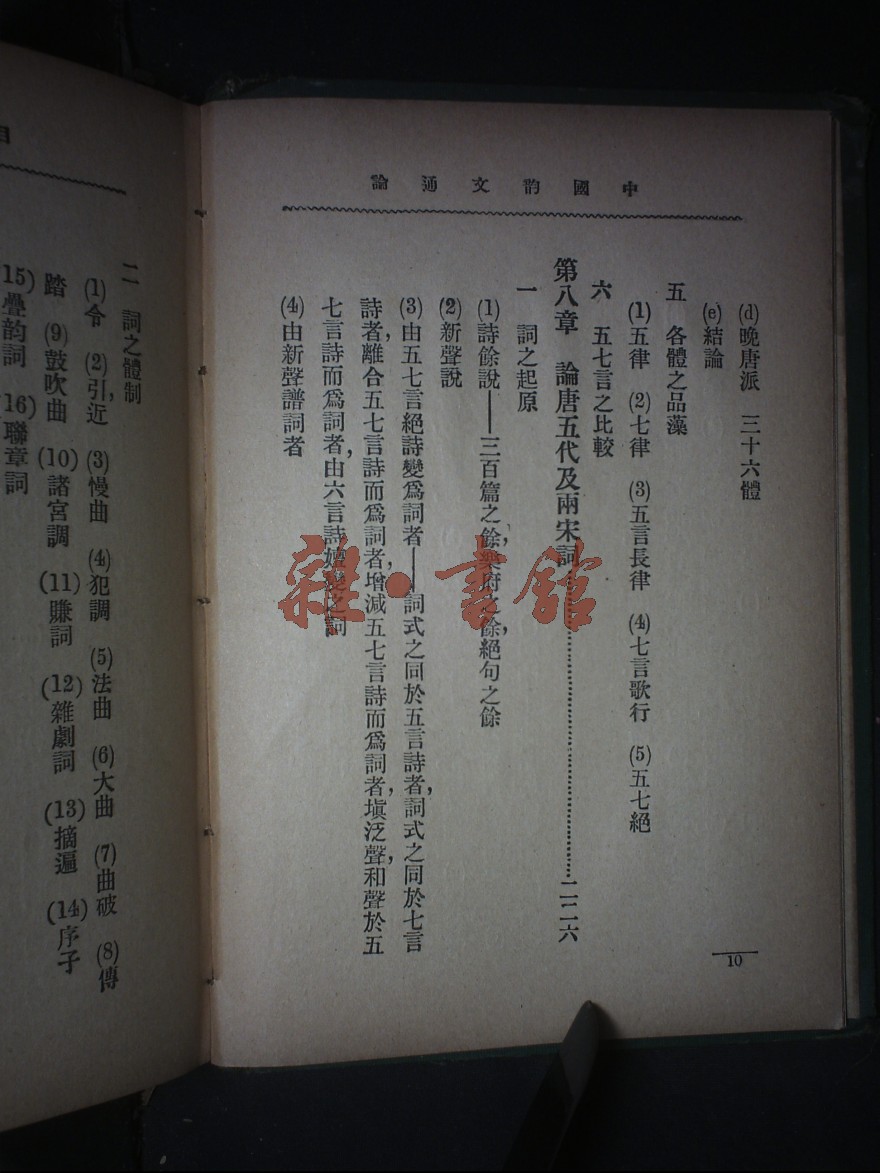 中國韵文通論
(d)晚唐派　三十六體
(e)結論
五　各體之品藻
(1)五律　(2)七律　(3)五言長律　(4)七言歌行　(5)五七絕
六　五七言之比較
第八章　論唐五代及兩宋詞……………………二二六
一　詞之起原
(1)詩餘說——三百篇之餘，樂府之餘，絕句之餘
(2)新聲說
(3)由五七言絕詩變爲詞者——詞式之同於五言詩者，詞式之同於七言
詩者，離合五七言詩而爲詞者，增減五七言詩而爲詞者，塡泛聲和聲於五
七言詩而爲詞者，由六言詩嬗變之詞
(4)由新聲譜詞者
10
目
二　詞之體制
(1)令　(2)引，近　(3)慢曲　(4)犯調　(5)法曲　(6)大曲　(7)曲破　(8)傳
踏　(9)鼓吹曲　(10)諸宮調　(11)賺詞　(12)雜劇詞　(13)摘遍　(14)序子
15)疊韵詞　(16)聯章詞
雜·書館